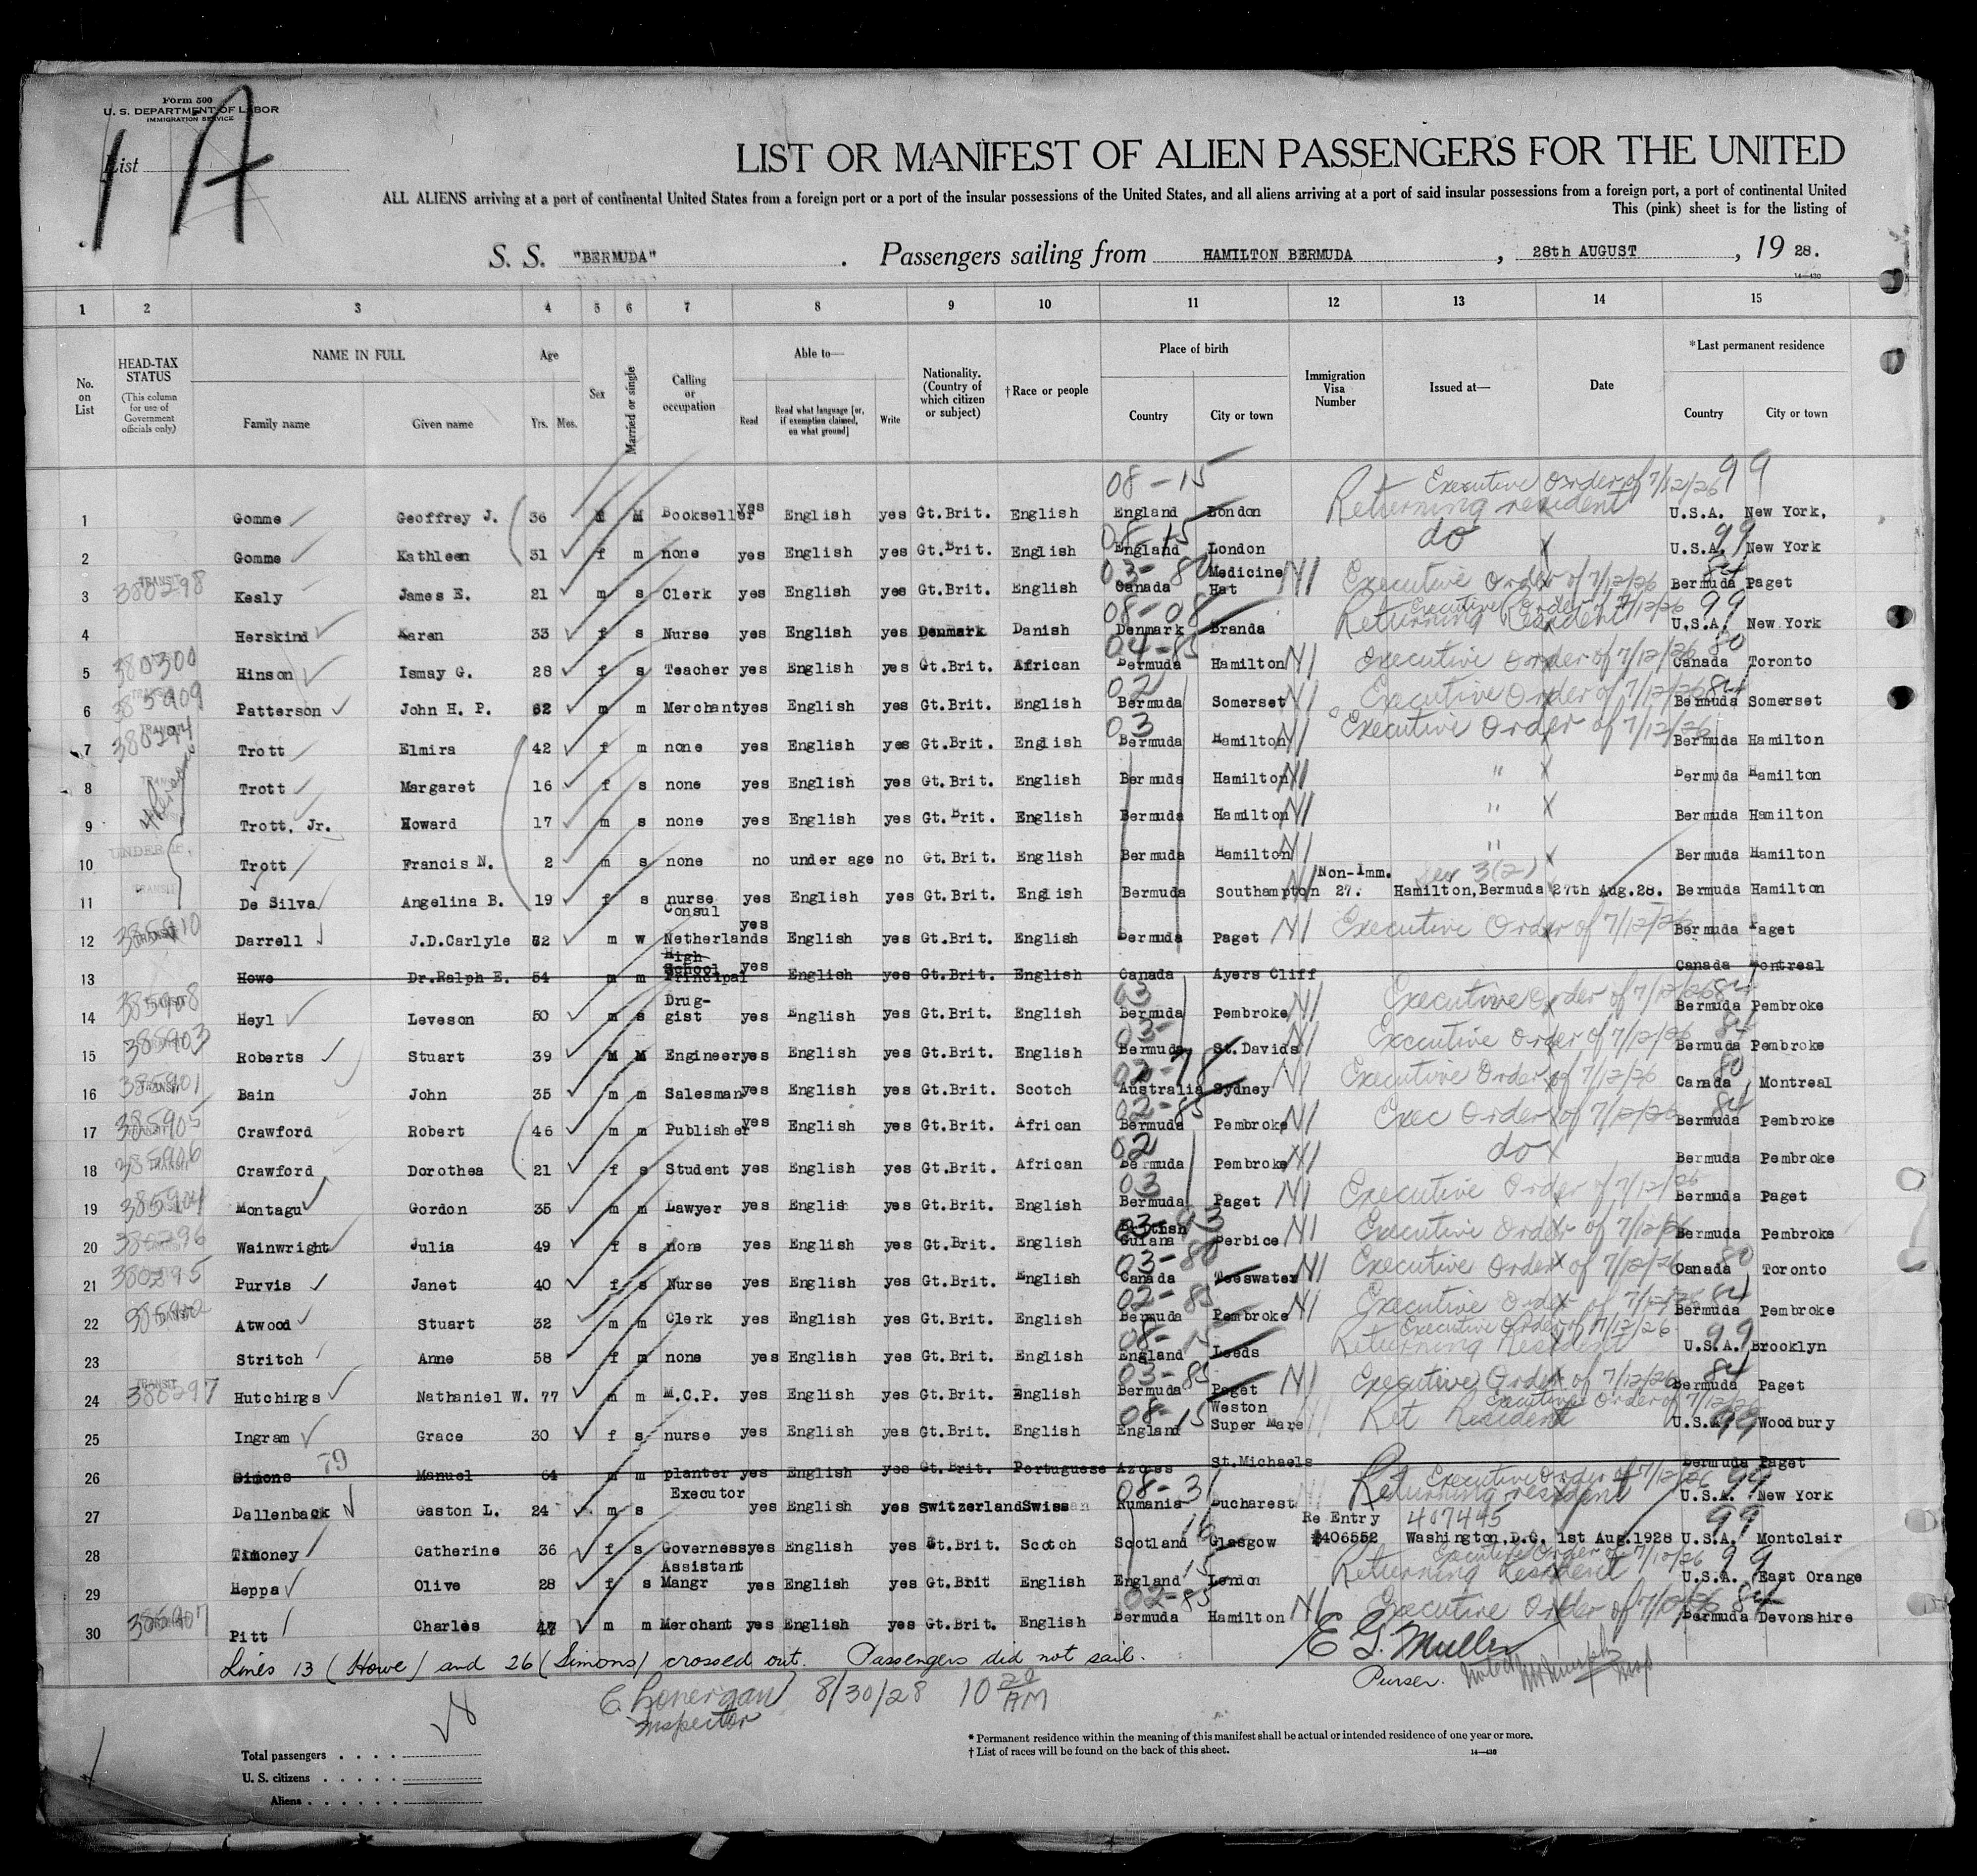 Form 500
U. S. DEPARTMENT OF LABOR
IMMIGRATION SERVICE
List 1A
LIST OR MANIFEST OF ALIEN PASSENGERS FOR THE UNITED
ALL ALIENS arriving at a port of continental United States from a foreign port or a port of the insular possessions of the United States, and all aliens arriving at a port of said insular possessions from a foreign port, a port of continental United
This (pink) sheet is for the listing of
S. S. "BERMUDA" . Passengers sailing from HAMILTON BERMUDA , 28th AUGUST , 19 28.
14—430
1 2 3 4 5 6 7 8 9 10 11 12 13 14 15
No. on List
HEAD-TAX STATUS (This column for use of Government officials only)
NAME IN FULL Family name Given name
Age Yrs. Mos.
Sex
Married or single
Calling or occupation
Able to— Read Read what language [or, if exemption claimed, on what ground] Write
Nationality. (Country of which citizen or subject)
† Race or people
Place of birth Country City or town
Immigration Visa Number
Issued at—
Date
* Last permanent residence Country City or town
08-15 Executive Order of 7/12/26 99
1 Gomme Geoffrey J. 36 M M Bookseller yes English yes Gt.Brit. English England London Returning resident U.S.A. New York,
08-15 99
2 Gomme Kathleen 31 f m none yes English yes Gt.Brit. English England London do U.S.A. New York
3 380298 TRANSIT Kealy James E. 21 m s Clerk yes English yes Gt.Brit. English 03-80 Canada Medicine Hat NI Executive Order of 7/12/26 84 Bermuda Paget
4 Herskind Karen 33 f s Nurse yes English yes Denmark Danish 08-08 Denmark Branda Executive Order of 7/12/26 Returning Resident 99 U.S.A. New York
5 380300 Hinson Ismay G. 28 f s Teacher yes English yes Gt.Brit. African 04-85 Bermuda Hamilton NI Executive Order of 7/12/26 80 Canada Toronto
6 385909 TRANSIT Patterson John H. P. 62 m m Merchant yes English yes Gt.Brit. English 02 Bermuda Somerset NI Executive Order of 7/12/26 84 Bermuda Somerset
7 380294 TRANSIT Trott Elmira 42 f m none yes English yes Gt.Brit. English 03 Bermuda Hamilton NI Executive Order of 7/12/26 Bermuda Hamilton
8 Trott Margaret 16 f s none yes English yes Gt.Brit. English Bermuda Hamilton NI " Bermuda Hamilton
9 Trott, Jr. Howard 17 m s none yes English yes Gt.Brit. English Bermuda Hamilton NI " Bermuda Hamilton
10 Trott Francis N. 2 m s none no under age no Gt.Brit. English Bermuda Hamilton NI " Bermuda Hamilton
11 TRANSIT De Silva Angelina B. 19 f s nurse yes English yes Gt.Brit. English Bermuda Southampton Non-Imm. 27. Sec 3(2) Hamilton,Bermuda 27th Aug.28. Bermuda Hamilton
12 385910 TRANSIT Darrell J.D.Carlyle m w Consul Netherlands yes English yes Gt.Brit. English Bermuda Paget NI Executive Order of 7/12/26 Bermuda Paget
13 Howe Dr.Ralph E. 54 m m High School Principal yes English yes Gt.Brit. English Canada Ayers Cliff Canada Montreal
14 385908 Heyl Leveson 50 m s Druggist yes English yes Gt.Brit. English 03 Bermuda Pembroke NI Executive Order of 7/12/26 84 Bermuda Pembroke
15 385903 Roberts Stuart 39 M M Engineer yes English yes Gt.Brit. English 03- Bermuda St.Davids NI Executive Order of 7/12/26 84 Bermuda Pembroke
16 385901 TRANSIT Bain John 35 m m Salesman yes English yes Gt.Brit. Scotch Australia Sydney NI Executive Order of 7/12/26 80 Canada Montreal
17 385905 Crawford Robert 46 m m Publisher yes English yes Gt.Brit. African 02-85 Bermuda Pembroke NI Exec Order of 7/12/26 84 Bermuda Pembroke
18 385906 Crawford Dorothea 21 f s Student yes English yes Gt.Brit. African 02 Bermuda Pembroke NI do Bermuda Pembroke
19 385904 Montagu Gordon 35 m m Lawyer yes English yes Gt.Brit. English 03 Bermuda Paget NI Executive Order of 7/12/26 Bermuda Paget
20 380296 Wainwright Julia 49 f s none yes English yes Gt.Brit. English 03-93 British Guiana Berbice NI Executive Order of 7/12/26 Bermuda Pembroke
21 380295 Purvis Janet 40 f s Nurse yes English yes Gt.Brit. English 03-80 Canada Teeswater NI Executive Order of 7/12/26 80 Canada Toronto
22 385902 Atwood Stuart 32 m m Clerk yes English yes Gt.Brit. English 02-85 Bermuda Pembroke NI Executive Order of 7/12/26 84 Bermuda Pembroke
23 Stritch Anne 58 f m none yes English yes Gt.Brit. English 08-15 England Leeds Executive Order of 7/12/26 Returning Resident 99 U.S.A. Brooklyn
24 380297 TRANSIT Hutchings Nathaniel W. 77 m m M.C.P. yes English yes Gt.Brit. English 03-85 Bermuda Paget NI Executive Order of 7/12/26 84 Bermuda Paget
25 Ingram Grace 30 f s nurse yes English yes Gt.Brit. English 08-15 England Weston Super Mare Executive Order of 7/12/26 Ret Resident 99 U.S.A. Woodbury
26 Simons 79 Manuel 64 m m planter yes English yes Gt.Brit. Portuguese Azores St.Michaels Bermuda Paget
27 Dallenback Gaston L. 24 m s Executor yes English yes Switzerland Swiss 08-31 Rumania Bucharest Executive Order of 7/12/26 Returning resident 99 U.S.A. New York
28 Timoney Catherine 36 f s Governess yes English yes Gt.Brit. Scotch 16 Scotland Glasgow Re Entry #406552 407445 Washington,D.C. 1st Aug.1928 99 U.S.A. Montclair
29 Heppa Olive 28 f s Assistant Mangr yes English yes Gt.Brit English 15 England London Executive Order of 7/12/26 Returning Resident 99 U.S.A. East Orange
30 385907 Pitt Charles 47 m m Merchant yes English yes Gt.Brit. English 02-85 Bermuda Hamilton NI Executive Order of 7/12/26 84 Bermuda Devonshire
Lines 13 (Howe) and 26 (Simons) crossed out. Passengers did not sail. E G. Muller
Purser.
C. Lonergan 8/30/28 10 20 AM
Inspector
* Permanent residence within the meaning of this manifest shall be actual or intended residence of one year or more.
† List of races will be found on the back of this sheet. 14—430
Total passengers . . . .
U. S. citizens . . . . .
Aliens . . . . . .